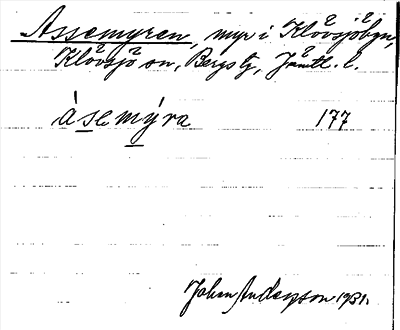 Assemyren, myr i Klövsjöbyn,
Klövsjö sn, Bergs tg, Jämtl. l.
àsemýra 177
Johan Andersson 1931.